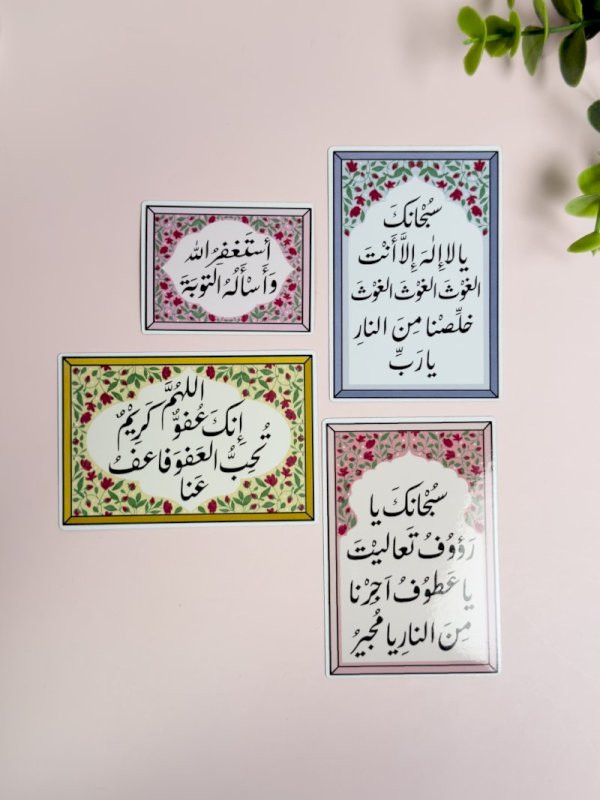 أستَغفِرُ الله
وَأَسْأَلُهُ التوبَة
سُبْحانكَ
يالا إِلٰهَ إِلاَّ أَنْتَ
الغَوْثَ الغَوْثَ الغَوْثَ
خلِّصْنا مِنَ النارِ
يارَبِّ
اللهُمَّ
إِنكَ عُفوٌّ كَرِيْمٌ
تُحِبُّ العَفوَ فاعفُ
عَنا
سُبْحانكَ يا
رَؤوُفُ تَعاليْتَ
يا عَطوُفُ اَجِرْنا
مِنَ النارِ يا مُجيرُ